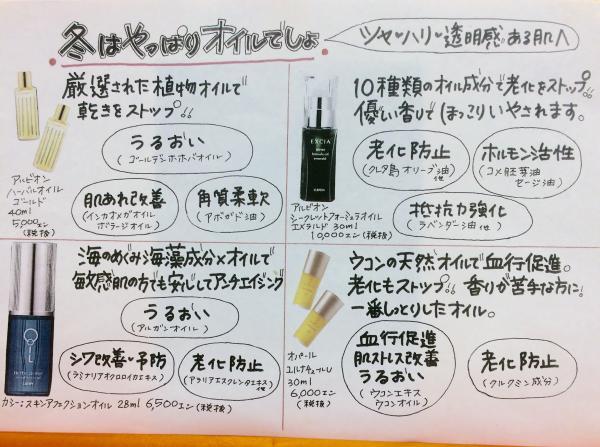 冬はやっぱりオイルでしょ
ツヤ・ハリ・透明感ある肌へ
厳選された植物オイルで
乾きをストップ!!
うるおい
(ゴールデンホホバオイル)
肌あれ改善
(インカオメガオイル
ボラージオイル)
角質柔軟
(アボガド油)
アルビオン
ハーバルオイル
ゴールド
40ml
5,000エン
(税抜)
10種類のオイル成分で老化をストップ!!
優しい香りでほっこりいやされます。
EXCIA
ALBION
老化防止
(クレタ島オリーブ油)
他
ホルモン活性
(コメ胚芽油
セージ油)
抵抗力強化
(ラベンダー油他)
アルビオン
シークレットフォーミュラオイル
エメラルド 30ml
10,000エン(税抜)
海のめぐみ海藻成分×オイルで
敏感肌の方でも安心してアンチエイジング
うるおい
(アルガンオイル)
シワ改善・予防
(ラミナリアオクロロイカエキス)
老化防止
(アラリアエスクレンタエキス)
他
OIL
カシー:スキンアフェクションオイル 28ml 6,500エン(税抜)
ウコンの天然オイルで血行促進。
老化もストップ!! 香りが苦手な方に!
一番しっとりしたオイル。
血行促進
肌ストレス改善
うるおい
(ウコンエキス
ウコンオイル)
老化防止
(クルクミン成分)
オパール
ユルナチュールU
30ml
6,000エン
(税抜)